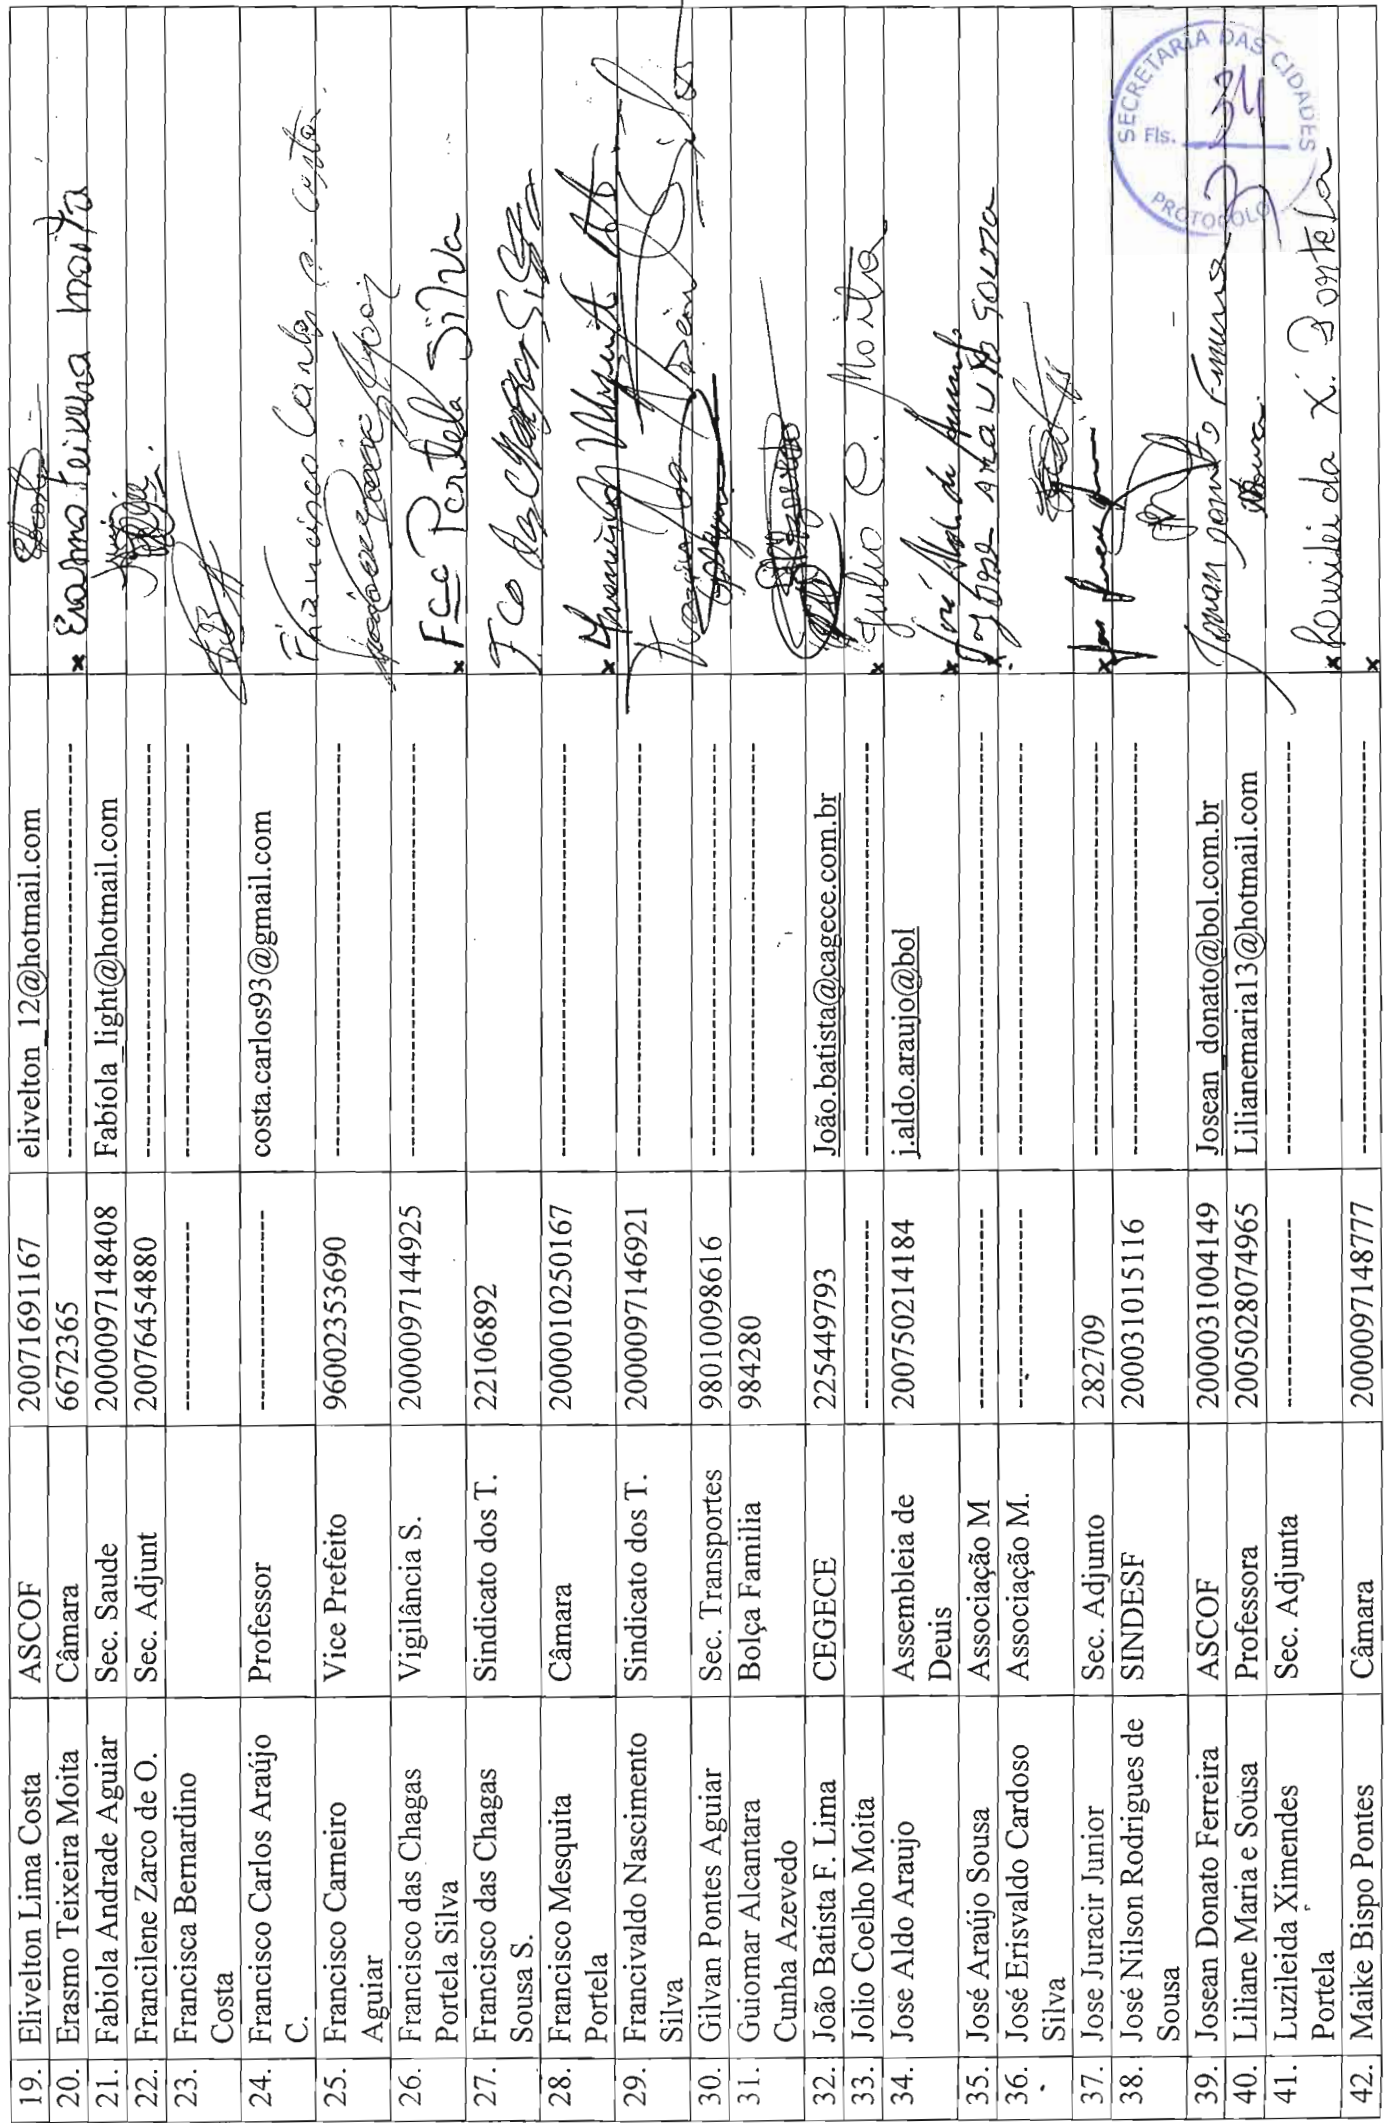 19. Elivelton Lima Costa ASCOF 20071691167 elivelton_12@hotmail.com
20. Erasmo Teixeira Moita Câmara 6672365 ---------------- x Erasmo Teixeira Moita
21. Fabiola Andrade Aguiar Sec. Saude 2000097148408 Fabíola_light@hotmail.com
22. Francilene Zarco de O. Sec. Adjunt 20076454880 ----------------
23. Francisca Bernardino ---------------- ----------------
Costa
24. Francisco Carlos Araújo Professor ---------------- costa.carlos93@gmail.com Francisco Carlos a. costa.
C.
25. Francisco Carneiro Vice Prefeito 96002353690 ----------------
Aguiar
26. Francisco das Chagas Vigilância S. 2000097144925 ---------------- x Fcc Portela Silva
Portela Silva
27. Francisco das Chagas Sindicato dos T. 22106892 Fco das Chagas
Sousa S.
28. Francisco Mesquita Câmara 2000010250167 ---------------- x
Portela
29. Francivaldo Nascimento Sindicato dos T. 2000097146921 ----------------
Silva
30. Gilvan Pontes Aguiar Sec. Transportes 98010098616 ----------------
31. Guiomar Alcantara Bolça Familia 984280 ----------------
Cunha Azevedo
32. João Batista F. Lima CEGECE 225449793 João.batista@cagece.com.br
33. Jolio Coelho Moita ---------------- ---------------- x Julio C. Moita
34. Jose Aldo Araujo Assembleia de 200750214184 j.aldo.araujo@bol x José Aldo de
Deuis
35. José Araújo Sousa Associação M ---------------- ---------------- x José Araujo Souza
36. José Erisvaldo Cardoso Associação M. ---------------- ----------------
Silva
37. Jose Juracir Junior Sec. Adjunto 282709 ---------------- x
38. José Nilson Rodrigues de SINDESF 200031015116 ----------------
Sousa
39. Josean Donato Ferreira ASCOF 2000031004149 Josean_donato@bol.com.br
40. Liliane Maria e Sousa Professora 2005028074965 Lilianemaria13@hotmail.com
41. Luzileida Ximendes Sec. Adjunta ---------------- ----------------
Portela x Lousileida X. Portela
42. Maike Bispo Pontes Câmara 2000097148777 ---------------- x
SECRETARIA DAS CIDADES
Fls. 34
PROTOCOLO